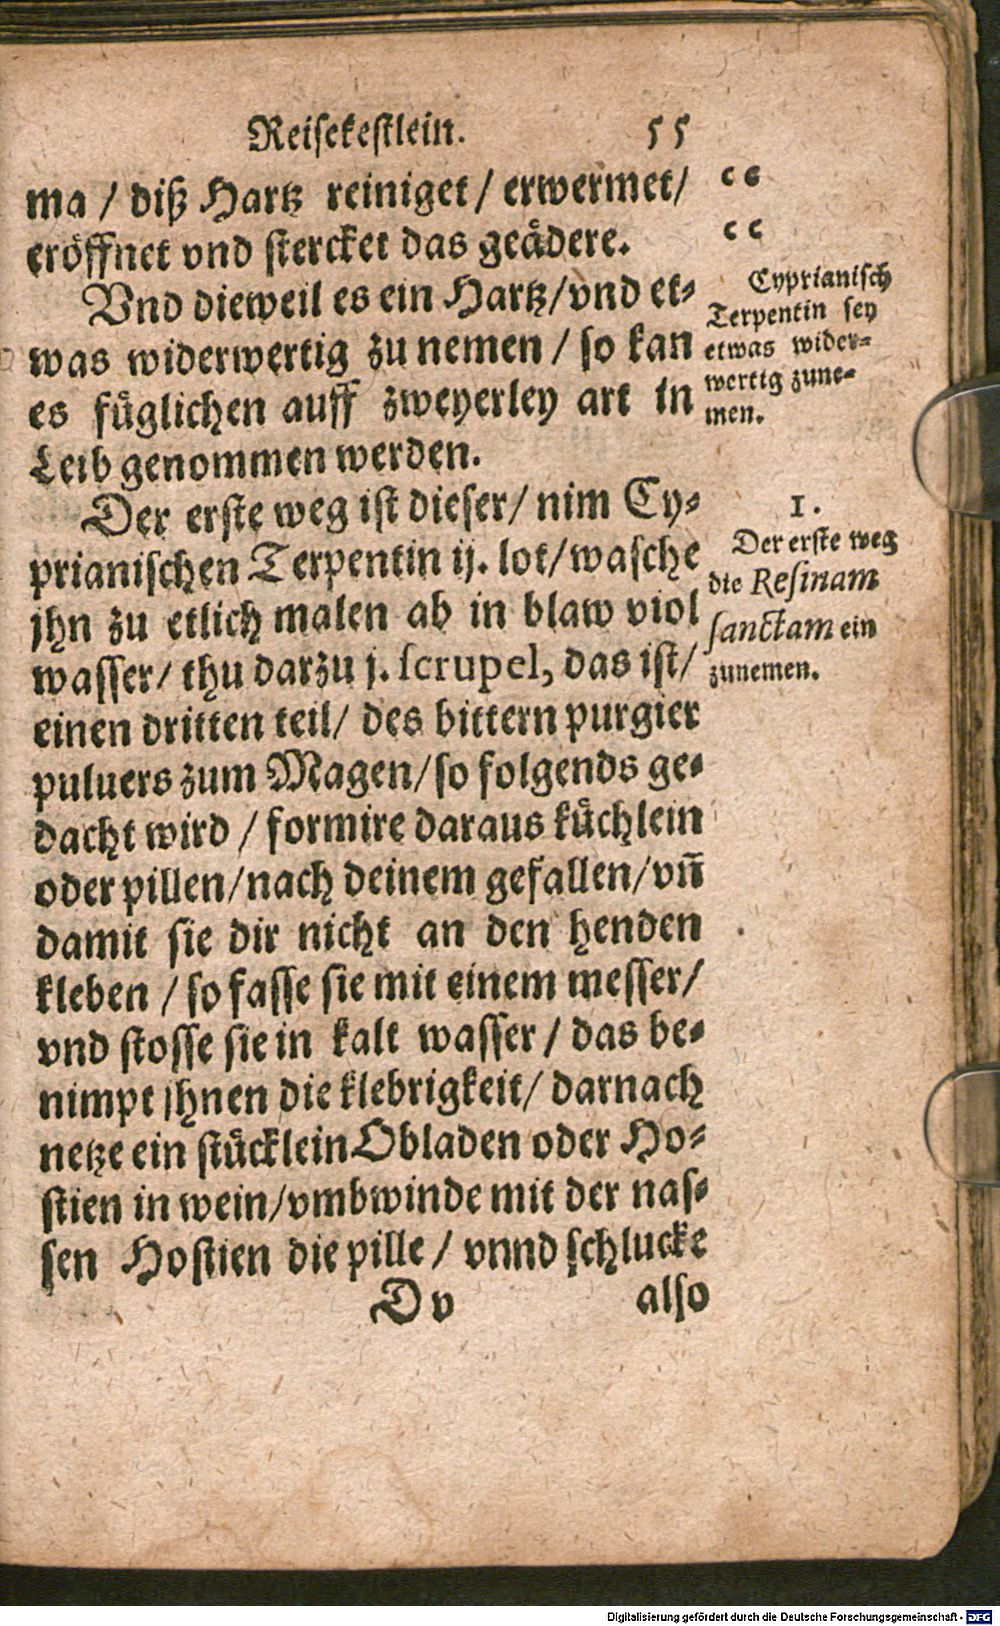 Reisekestlein. 55
ma / diß Hartz reiniget / erwermet/
eröffnet vnd stercket das geädere.
Vnd dieweil es ein Hartz/vnd et-
was widerwertig zu nemen / so kan
es füglichen auff zweyerley art in
Leib genommen werden.
Der erste weg ist dieser/ nim Cy-
prianischen Terpentin ij. lot/wasche
jhn zu etlich malen ab in blaw viol
wasser/ thu darzu j. scrupel, das ist/
einen dritten teil/ des bittern purgier
puluers zum Magen/so folgends ge-
dacht wird / formire daraus küchlein
oder pillen/nach deinem gefallen/vñ
damit sie dir nicht an den henden
kleben / so fasse sie mit einem messer/
vnd stosse sie in kalt wasser / das be-
nimpt jhnen die klebrigkeit/ darnach
netze ein stücklein Obladen oder Ho-
stien in wein/vmbwinde mit der nas-
sen Hostien die pille / vnnd schlucke
D v also
“
“
Cyprianisch
Terpentin sey
etwas wider-
wertig zune-
men.
1.
Der erste weg
die Resinam
sanctam ein
zunemen.
Digitalisierung gefördert durch die Deutsche Forschungsgemeinschaft - DFG